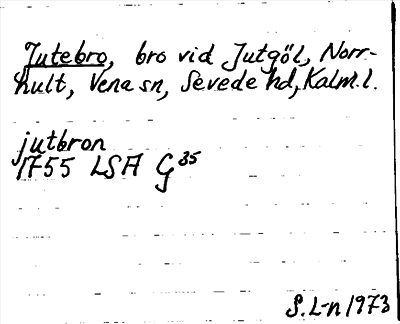 Jutebro, bro vid Jutgöl, Norr-
hult, Vena sn, Sevede hd, Kalm. l.
jutbron
1755 LSA G 35
S. L-n 1973